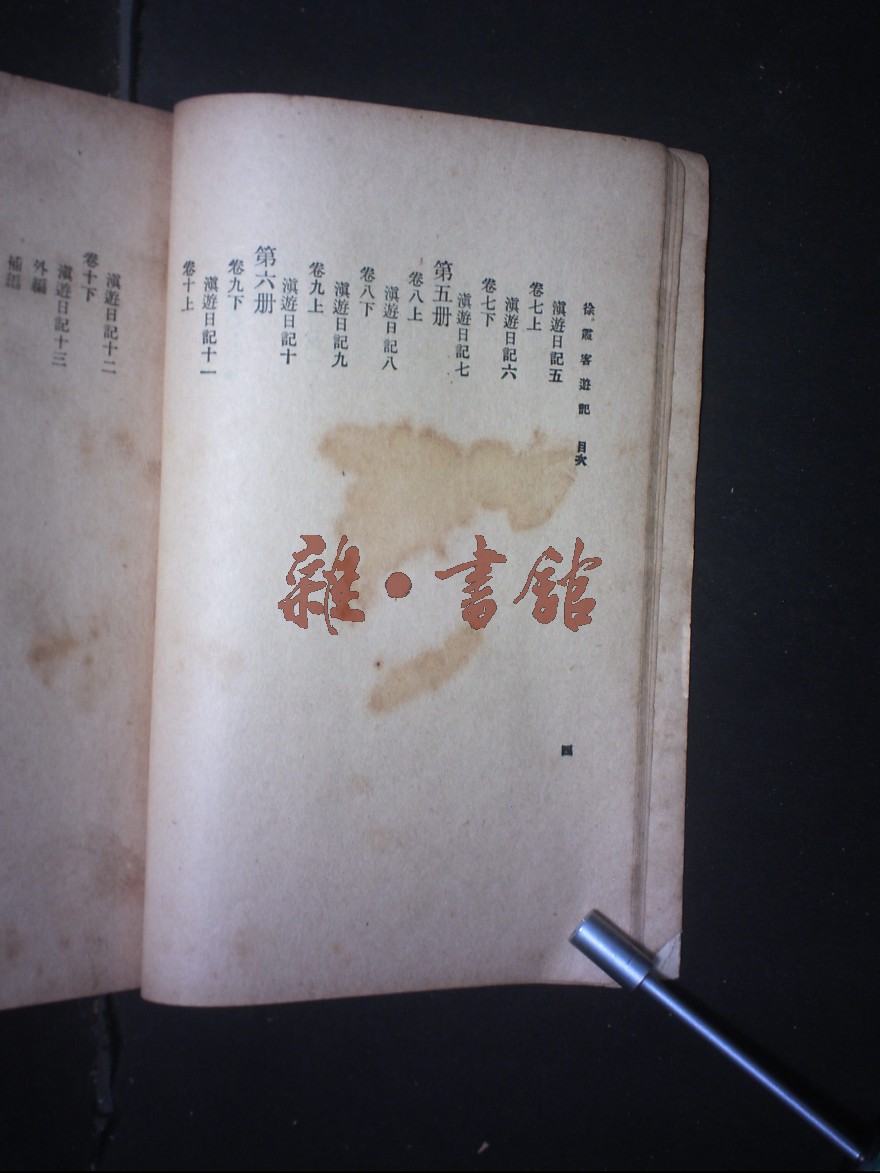 徐霞客遊記 目次
滇遊日記五
卷七上
滇遊日記六
卷七下
滇遊日記七
第五册
卷八上
滇遊日記八
卷八下
滇遊日記九
卷九上
滇遊日記十
第六册
卷九下
滇遊日記十一
卷十上
四
滇遊日記十二
卷十下
滇遊日記十三
外編
補編
雜·書館